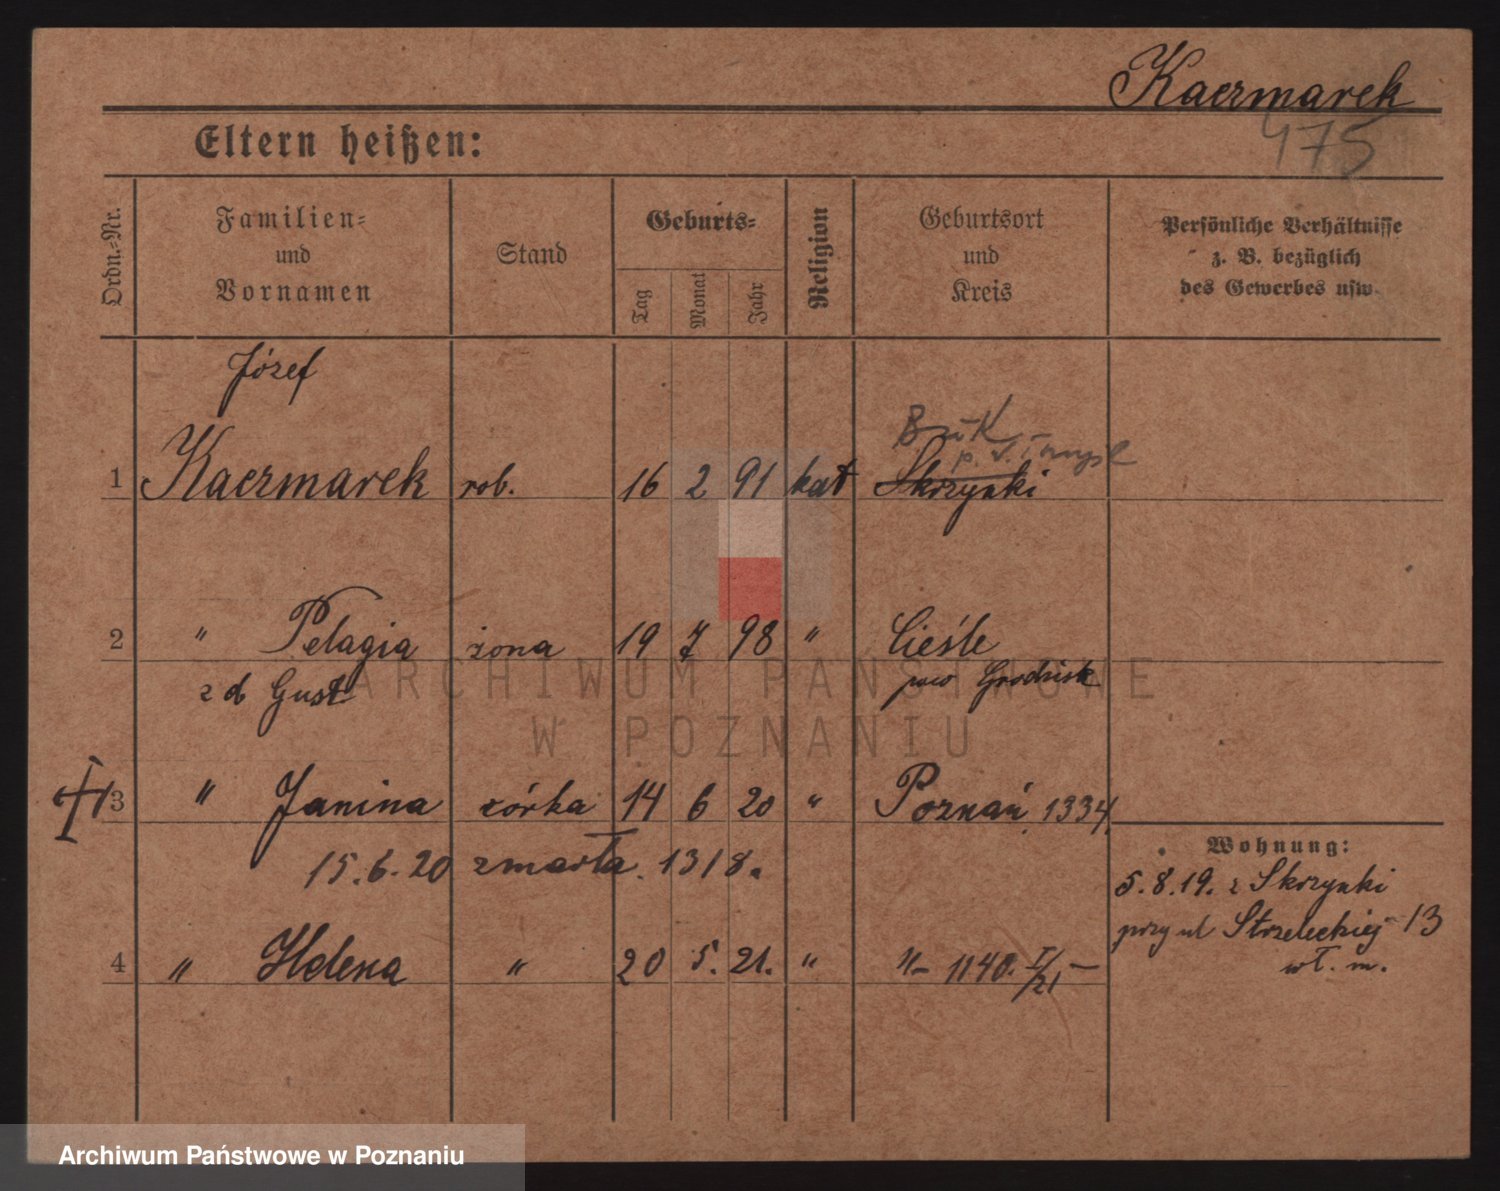 Kaczmarek
475
Eltern heißen:
Ordn.=Nr.
Familien=
und
Vornamen
Stand
Geburts=
Tag
Monat
Jahr
Religion
Geburtsort
und
Kreis
Persönliche Verhältnisse
z. B. bezüglich
des Gewerbes usw.
Józef
Buk
1 Kaczmarek rob. 16 2 91 kat Skrzynki
2 " Pelagia żona 19 7 98 " Cieśle
z d. Gust pow Grodzisk
ARCHIWUM PAŃSTWOWE
W POZNANIU
3 " Janina córka 14 6 20 " Poznań, 1334.
15.6.20 zmarła. 1318.
Wohnung:
5.8.19. z Skrzynki
przy ul Strzeleckiej 13
wł. m.
4 " Helena " 20 5. 21. " "- 1140. I/21 -
Archiwum Państwowe w Poznaniu